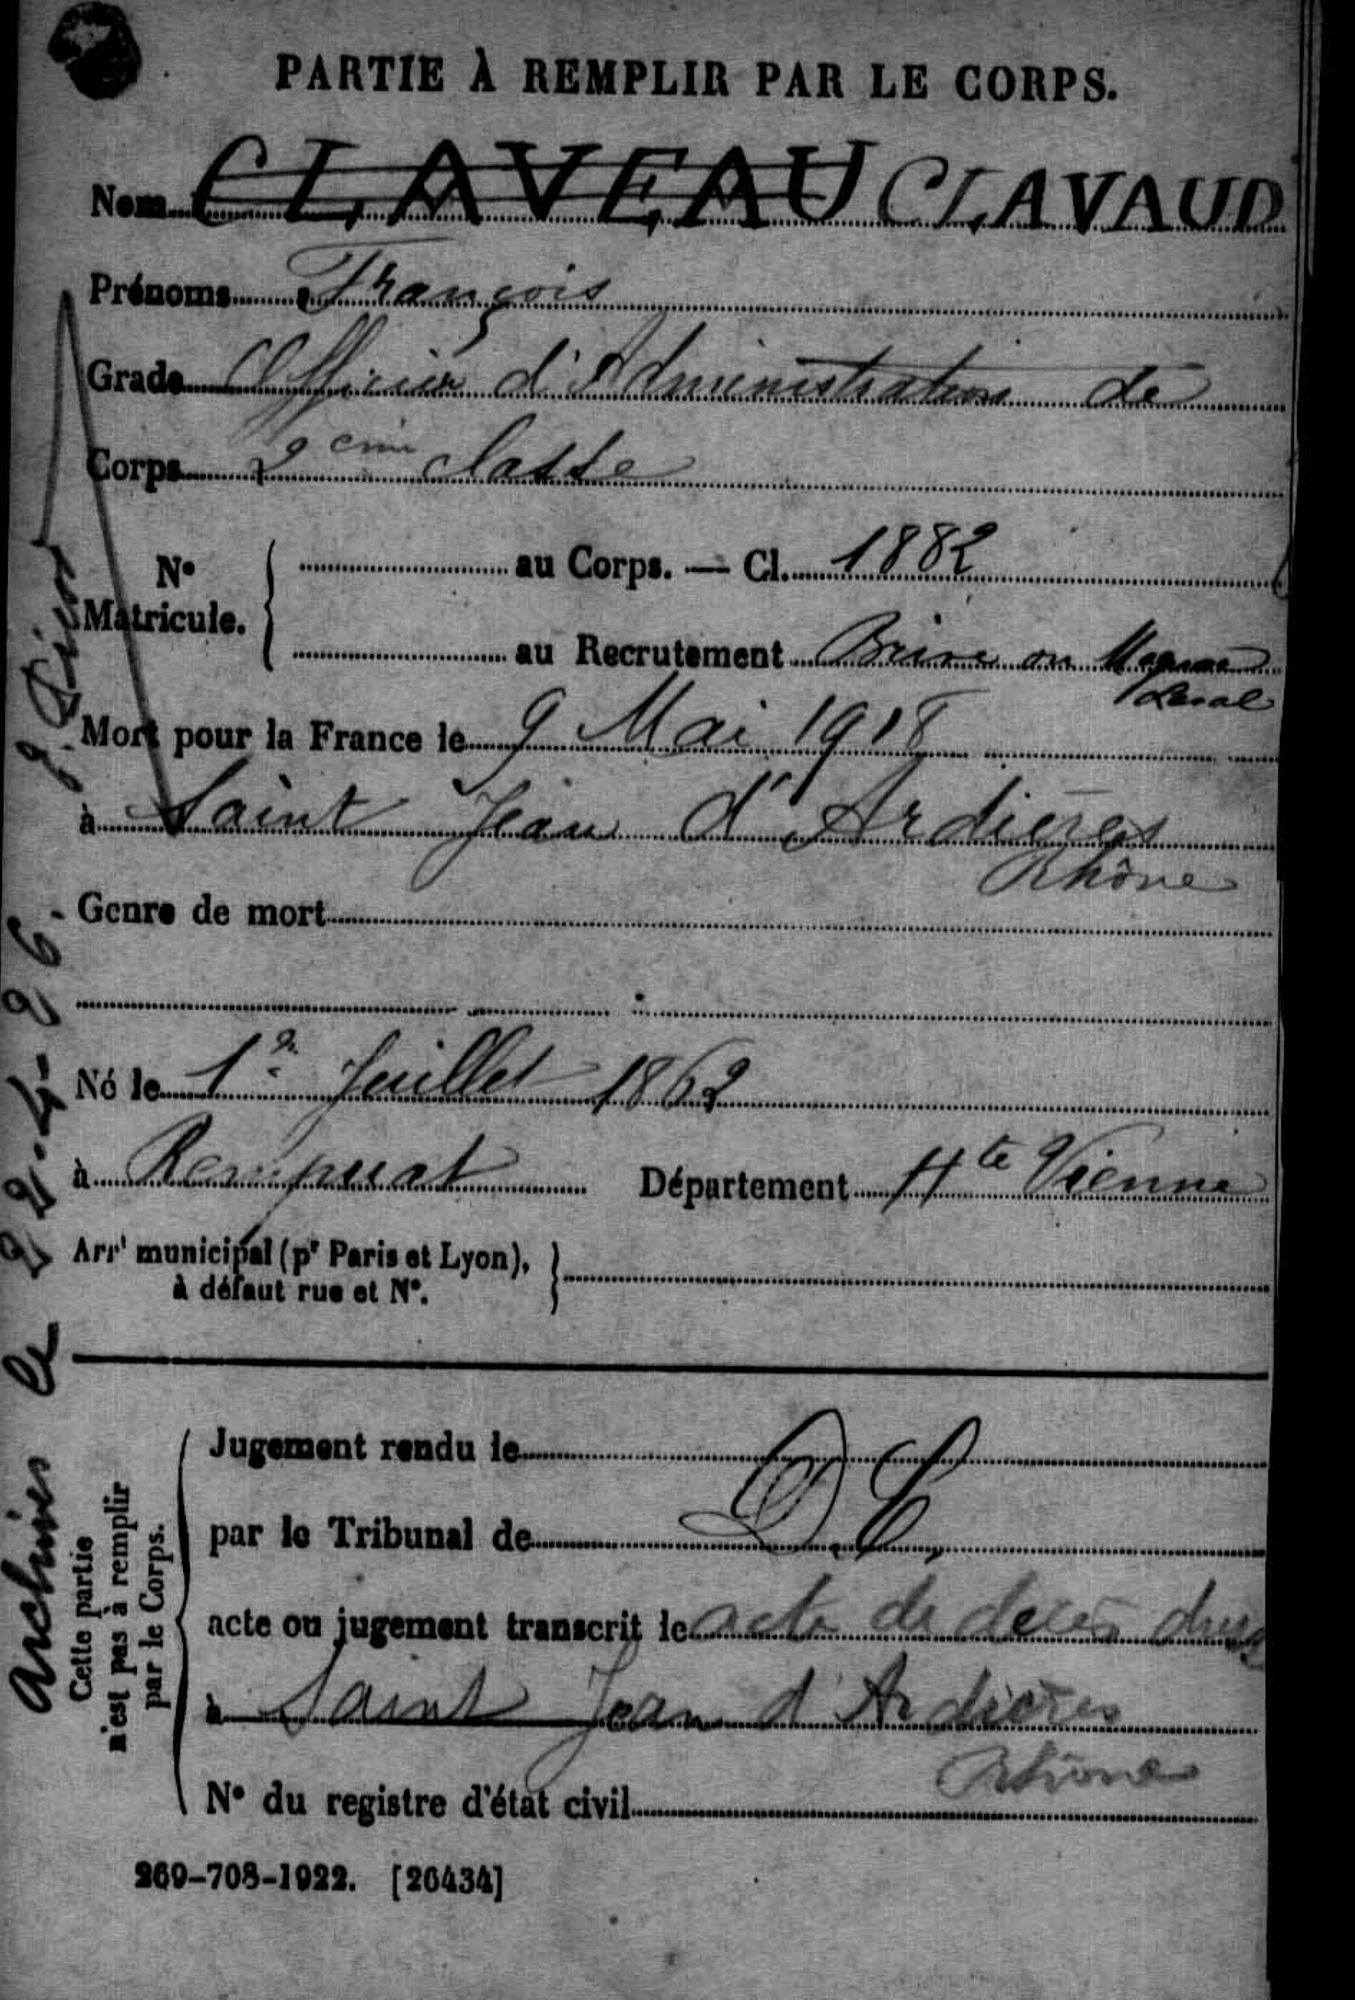 PARTIE À REMPLIR PAR LE CORPS.
Nom CLAVEAU CLAVAUD
Prénoms François
Grade Officier d'Administration de
Corps 2ème classe
N° Matricule. au Corps. — Cl. 1882
au Recrutement Brive ou
Laval
Mort pour la France le 9 Mai 1918
à Saint Jean d'Ardières
Rhône
Genre de mort
Né le 1er Juillet 1862
à Rempnat Département Hte Vienne
Arrt municipal (pr Paris et Lyon),
à défaut rue et N°.
Jugement rendu le
par le Tribunal de D.C.
acte ou jugement transcrit le acte de décès
à Saint Jean d'Ardières
Rhône
N° du registre d'état civil
269-708-1922. [26434]
Cette partie
n'est pas à remplir
par le Corps.
archives le 22-4-26.